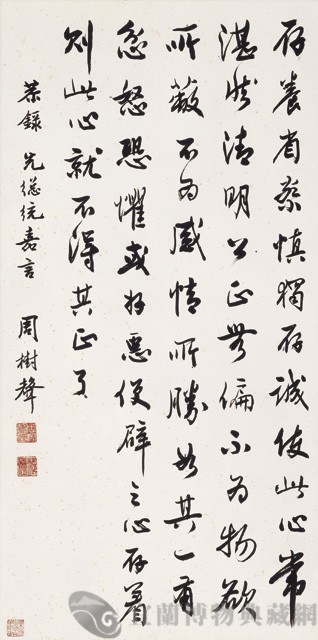 存養省察慎獨存誠使此心常
湛然清明公正無偏不為物欲
所蔽不為感情所勝如其一有
忿怒恐懼或好惡便辟之心存着
則此心就不得其正了
恭錄 先總統嘉言 周樹聲
宜蘭博物典藏網